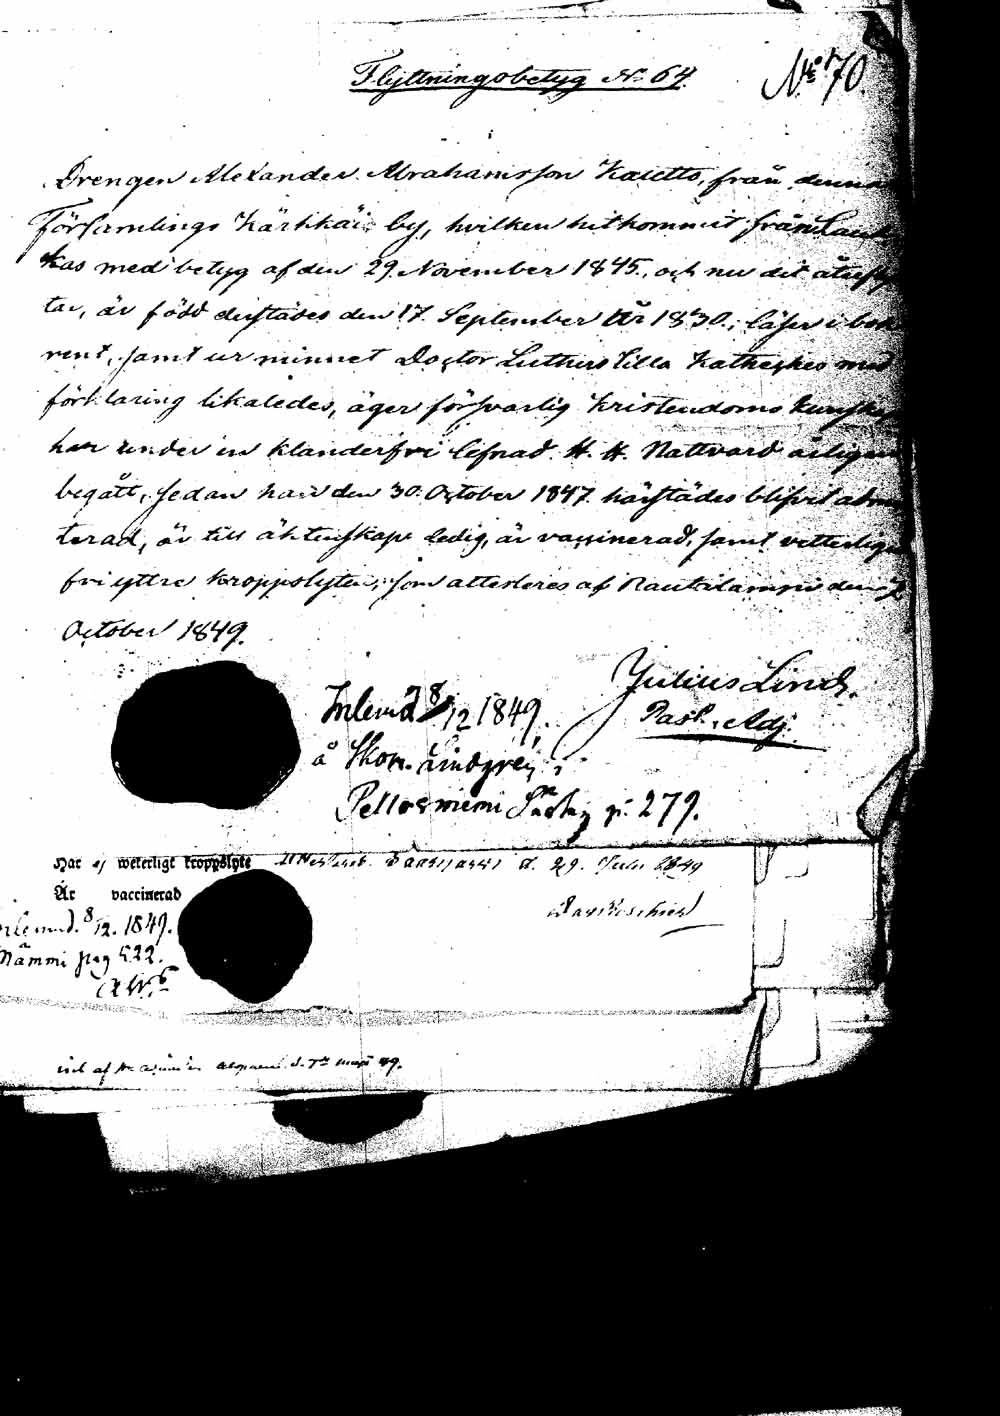 Flyttningsbetyg No 64.
No 70.
Drengen Alexander Abrahamsson Kaletto, från denna
Församlings Kärkkäis by, hvilken hitkommit från Lau
kas med betyg af den 29. November 1845., och nu dit återflyt
tar, är född derstädes den 17. September År 1830.; läser i bok
rent, samt ur minnet Doctor Luthers lilla Katheches med
förklaring likaledes, äger försvarlig Kristendoms kunskap
har under en klanderfri lefnad H. H. Nattvard årligen
begått, sedan han den 30. October 1847. härstädes blifvit admit
terad, är till äktenskap ledig, är vaccinerad, samt vetterligen
fri yttre kroppslyten; som attesteres af Rautalampi den
October 1849.
Julius Lind.
Past. Adj.
Inlemnad 28/12 1849,
å Skom. Lindgren
Pellosniemi pag. 279.
Har ej weterligt kroppslyte
d. 29. 1849
Är vaccinerad
Inlemnd. 8/12. 1849.
Nämmi pag 522.
af d. 7de 49.